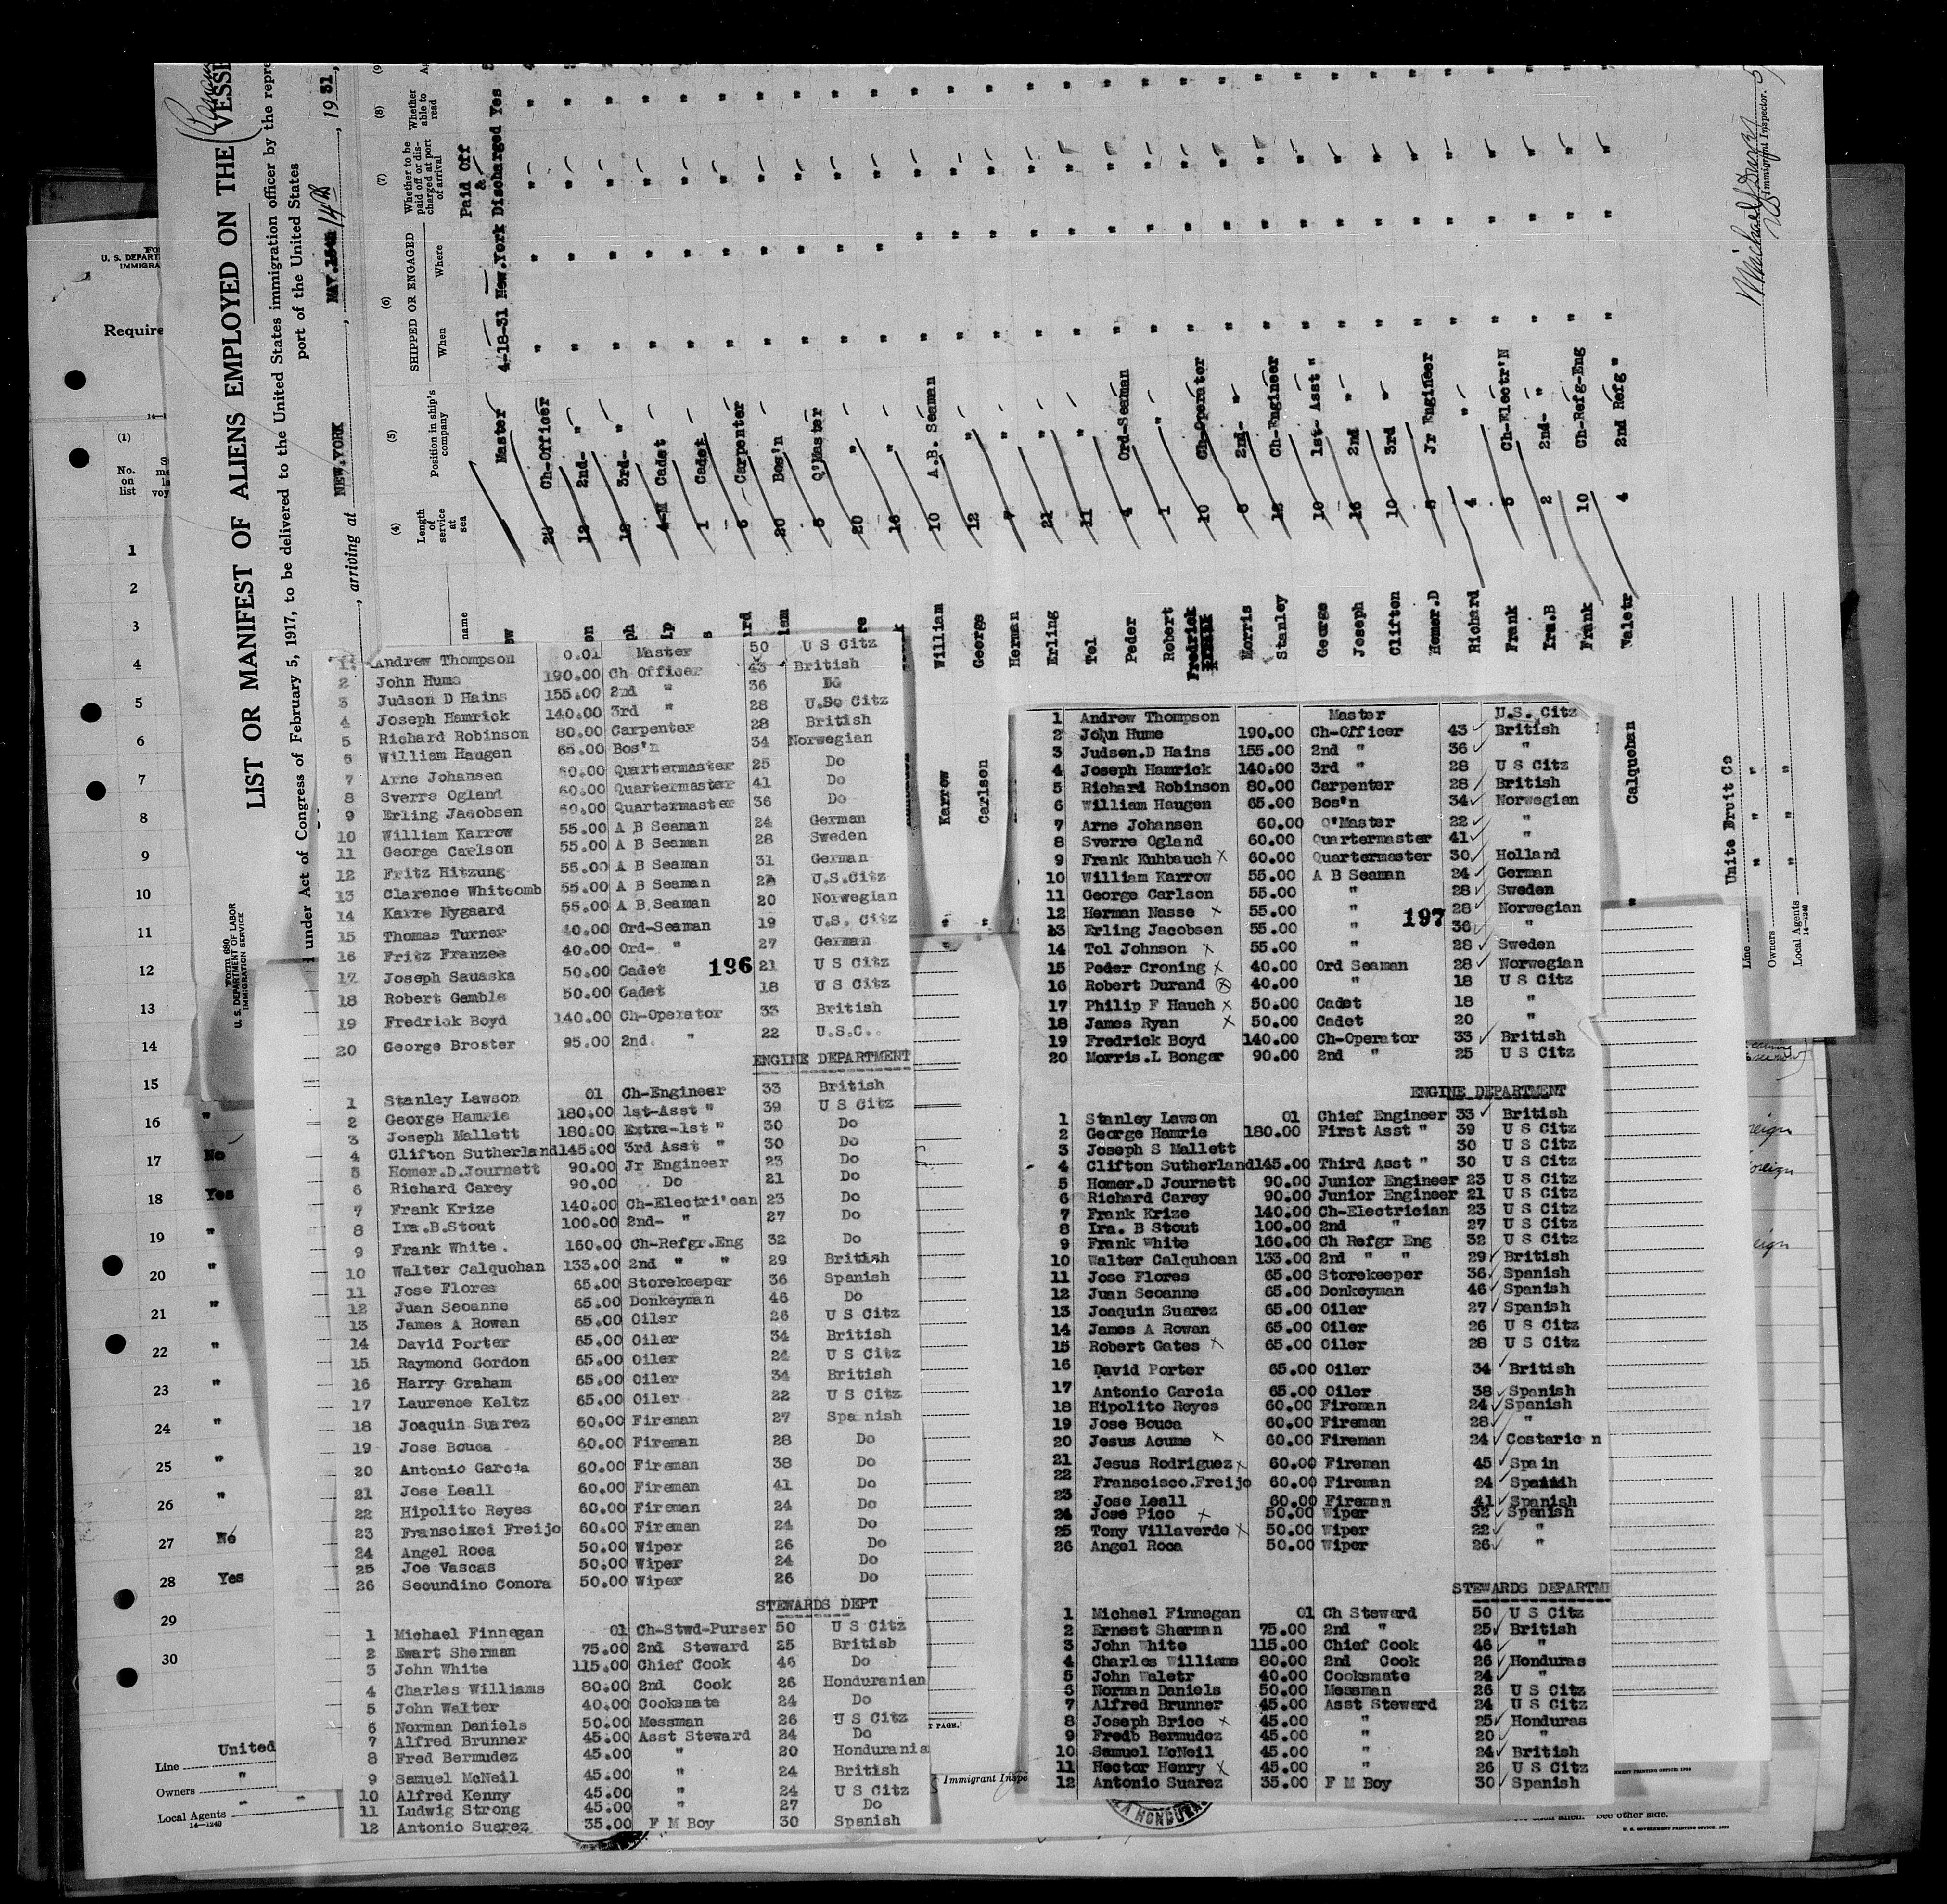 LIST OR MANIFEST OF ALIENS EMPLOYED ON THE VESSE
under Act of Congress of February 5, 1917, to be delivered to the United States immigration officer by the repre
port of the United States
, arriving at NEW.YORK , MAY. 14th , 19 31
(4) (5) (6) (7) (8) (9
Length of service at sea
Position in ship's company
SHIPPED OR ENGAGED
When
Where
Whether to be paid off or discharged at port of arrival
Whether able to read
name
Paid Off
&
Master 4-18-31 New.York Discharged Yes 5
Ch-Officer " " " "
12 2nd- " " " " "
12 3rd- " " " " "
4-M Cadet " " " "
1 Cadet " " " "
6 Carpenter " " " "
20 Bos'n " " " "
5 Q'Master " " " "
20 " " " " "
16 " " " " "
William 10 A.B. Seaman " " " "
George 12 " " " " "
Herman 7 " " " " "
Erling 21 " " " " "
Tol 11 " " " " "
Peder 4 Ord-Seaman " " " "
Robert 1 " " " " "
Fredrick 10 Ch-Operator " " " "
Morris 6 2nd- " " " " "
Stanley 12 Ch-Engineer " " " "
George 10 1st- Asst " " " " "
Joseph 16 2nd " " " " "
Clifton 10 3rd " " " " "
Homer.D 5 Jr Engineer " " " "
Richard 4 " " " " "
Frank 5 Ch-Electr'N " " " "
Ira.B 2 2nd- " " " " "
Frank 10 Ch-Refg-Eng " " " "
Waletr 4 2nd Refg " " " " "
Karrow
Carlson
Calquchan
Immigrant Inspector.
Line
Owners
Local Agents
14-1240
Unite Fruit Co
Form 680
U. S. DEPARTMENT OF LABOR
IMMIGRATION SERVICE
U. S. DEPART
IMMIGRA
Require
(1)
No. on list
1
2
3
4
5
6
7
8
9
10
11
12
13
14
15
16 "
17 No
18 Yes
19 "
20 "
21 "
22 "
23 "
24 "
25 "
26 "
27 No
28 Yes
29
30
Line United
Owners "
Local Agents "
14-1240
1 Andrew Thompson 0.01 Master 50 U S Citz
2 John Hume 190.00 Ch Officer 43 British
3 Judson D Hains 155.00 2nd " 36 Do
4 Joseph Hamrick 140.00 3rd " 28 U.S. Citz
5 Richard Robinson 80.00 Carpenter 28 British
6 William Haugen 65.00 Bos'n 34 Norwegian
7 Arne Johansen 60.00 Quartermaster 25 Do
8 Sverre Ogland 60.00 Quartermaster 41 Do
9 Erling Jacobsen 60.00 Quartermaster 36 Do
10 William Karrow 55.00 A B Seaman 24 German
11 George Carlson 55.00 A B Seaman 28 Sweden
12 Fritz Hitzung 55.00 A B Seaman 31 German
13 Clarence Whitcomb 55.00 A B Seaman U.S.Citz
14 Karre Nygaard 55.00 A B Seaman 20 Norwegian
15 Thomas Turner 40.00 Ord-Seaman 19 U.S. Citz
16 Fritz Franzee 40.00 Ord- " 27 German
17 Joseph Sauaska 50.00 Cadet 196 21 U S Citz
18 Robert Gamble 50.00 Cadet 18 U S Citz
19 Fredrick Boyd 140.00 Ch-Operator 33 British
20 George Broster 95.00 2nd. " 22 U.S.C.
ENGINE DEPARTMENT
1 Stanley Lawson 01 Ch-Engineer 33 British
2 George Hamrie 180.00 1st-Asst " 39 U S Citz
3 Joseph Mallett 180.00 Extra-1st " 30 Do
4 Clifton Sutherland 145.00 3rd Asst " 30 Do
5 Homer.D.Journett 90.00 Jr Engineer 23 Do
6 Richard Carey 90.00 Do 21 Do
7 Frank Krize 140.00 Ch-Electri'can 23 Do
8 Ira.B.Stout 100.00 2nd- " 27 Do
9 Frank White. 160.00 Ch-Refgr.Eng 32 Do
10 Walter Calquohan 133.00 2nd " " 29 British
11 Jose Flores 65.00 Storekeeper 36 Spanish
12 Juan Seoanne 65.00 Donkeyman 46 Do
13 James A Rowan 65.00 Oiler 26 U S Citz
14 David Porter 65.00 Oiler 34 British
15 Raymond Gordon 65.00 Oiler 24 U S Citz
16 Harry Graham 65.00 Oiler 34 British
17 Laurence Keltz 65.00 Oiler 22 U S Citz
18 Joaquin Suarez 60.00 Fireman 27 Spanish
19 Jose Bouca 60.00 Fireman 28 Do
20 Antonio Garcia 60.00 Fireman 38 Do
21 Jose Leall 60.00 Fireman 41 Do
22 Hipolito Reyes 60.00 Fireman 24 Do
23 Franscisci Freijo 60.00 Fireman 24 Do
24 Angel Roca 50.00 Wiper 26 Do
25 Joe Vascas 50.00 Wiper 24 Do
26 Secundino Conora 50.00 Wiper 26 Do
STEWARDS DEPT
1 Michael Finnegan 01 Ch-Stwd-Purser 50 U S Citz
2 Ewart Sherman 75.00 2nd Steward 25 British
3 John White 115.00 Chief Cook 46 Do
4 Charles Williams 80.00 2nd Cook 26 Honduranian
5 John Walter 40.00 Cooksmate 24 Do
6 Norman Daniels 50.00 Messman 26 U S Citz
7 Alfred Brunner 45.00 Asst Steward 24 Do
8 Fred Bermudez 45.00 " 20 Hondurania
9 Samuel McNeil 45.00 " 24 British
10 Alfred Kenny 45.00 " 24 U S Citz
11 Ludwig Strong 45.00 " 27 Do
12 Antonio Suarez 35.00 F M Boy 30 Spanish
1 Andrew Thompson Master U.S. Citz
2 John Hume 190.00 Ch-Officer 43 British
3 Judsen.D Hains 155.00 2nd " 36 "
4 Joseph Hamrick 140.00 3rd " 28 U S Citz
5 Richard Robinson 80.00 Carpenter 28 British
6 William Haugen 65.00 Bos'n 34 Norwegian
7 Arne Johansen 60.00 Q'Master 22 "
8 Sverre Ogland 60.00 Quartermaster 41 "
9 Frank Kuhbauch x 60.00 Quartermaster 30 Holland
10 William Karrow 55.00 A B Seaman 24 German
11 George Carlson 55.00 " 28 Sweden
12 Herman Nasse x 55.00 " 197 28 Norwegian
13 Erling Jacobsen 55.00 " 36 "
14 Tol Johnson x 55.00 " 28 Sweden
15 Peder Croning x 40.00 Ord Seaman 28 Norwegian
16 Robert Durand x 40.00 " 18 U S Citz
17 Philip F Hauch x 50.00 Cadet 18 "
18 James Ryan x 50.00 Cadet 20 "
19 Fredrick Boyd 140.00 Ch-Operator 33 British
20 Morris.L Bonger 90.00 2nd " 25 U S Citz
ENGINE DEPARTMENT
1 Stanley Lawson 01 Chief Engineer 33 British
2 George Hamrie 180.00 First Asst " 39 U S Citz
3 Joseph S Mallett 30 U S Citz
4 Clifton Sutherland 145.00 Third Asst " 30 U S Citz
5 Homer.D Journett 90.00 Junior Engineer 23 U S Citz
6 Richard Carey 90.00 Junior Engineer 21 U S Citz
7 Frank Krize 140.00 Ch-Electrician 23 U S Citz
8 Ira. B Stout 100.00 2nd " 27 U S Citz
9 Frank White 160.00 Ch Refgr Eng 32 U S Citz
10 Walter Calquhoan 133.00 2nd " " 29 British
11 Jose Flores 65.00 Storekeeper 36 Spanish
12 Juan Seoanne 65.00 Donkeyman 46 Spanish
13 Joaquin Suarez 65.00 Oiler 27 Spanish
14 James A Rowan 65.00 Oiler 26 U S Citz
15 Robert Gates x 65.00 Oiler 28 U S Citz
16 David Porter 65.00 Oiler 34 British
17 Antonio Garcia 65.00 Oiler 38 Spanish
18 Hipolito Reyes 60.00 Fireman 24 Spanish
19 Jose Bouca 60.00 Fireman 28 "
20 Jesus Acume x 60.00 Fireman 24 Costaric n
21 Jesus Rodriguez x 60.00 Fireman 45 Spain
22 Franscisco.Freijo 60.00 Fireman 24 Spanish
23 Jose Leall 60.00 Fireman 41 Spanish
24 Jose Pico x 50.00 Wiper 32 Spanish
25 Tony Villaverde x 50.00 Wiper 22 "
26 Angel Roca 50.00 Wiper 26 "
STEWARDS DEPARTME
1 Michael Finnegan 01 Ch Steward 50 U S Citz
2 Ernest Sherman 75.00 2nd " 25 British
3 John White 115.00 Chief Cook 46 "
4 Charles Williams 80.00 2nd Cook 26 Honduras
5 John Waletr 40.00 Cooksmate 24 "
6 Norman Daniels 50.00 Messman 26 U S Citz
7 Alfred Brunner 45.00 Asst Steward 24 U S Citz
8 Joseph Brice x 45.00 " 25 Honduras
9 Fredb Bermudez 45.00 " 20 "
10 Samuel McNeil 45.00 " 24 British
11 Hector Henry x 45.00 " 26 U S Citz
12 Antonio Suarez 35.00 F M Boy 30 Spanish
T PAGE.
Immigrant Inspe
See other side.
U. S. GOVERNMENT PRINTING OFFICE